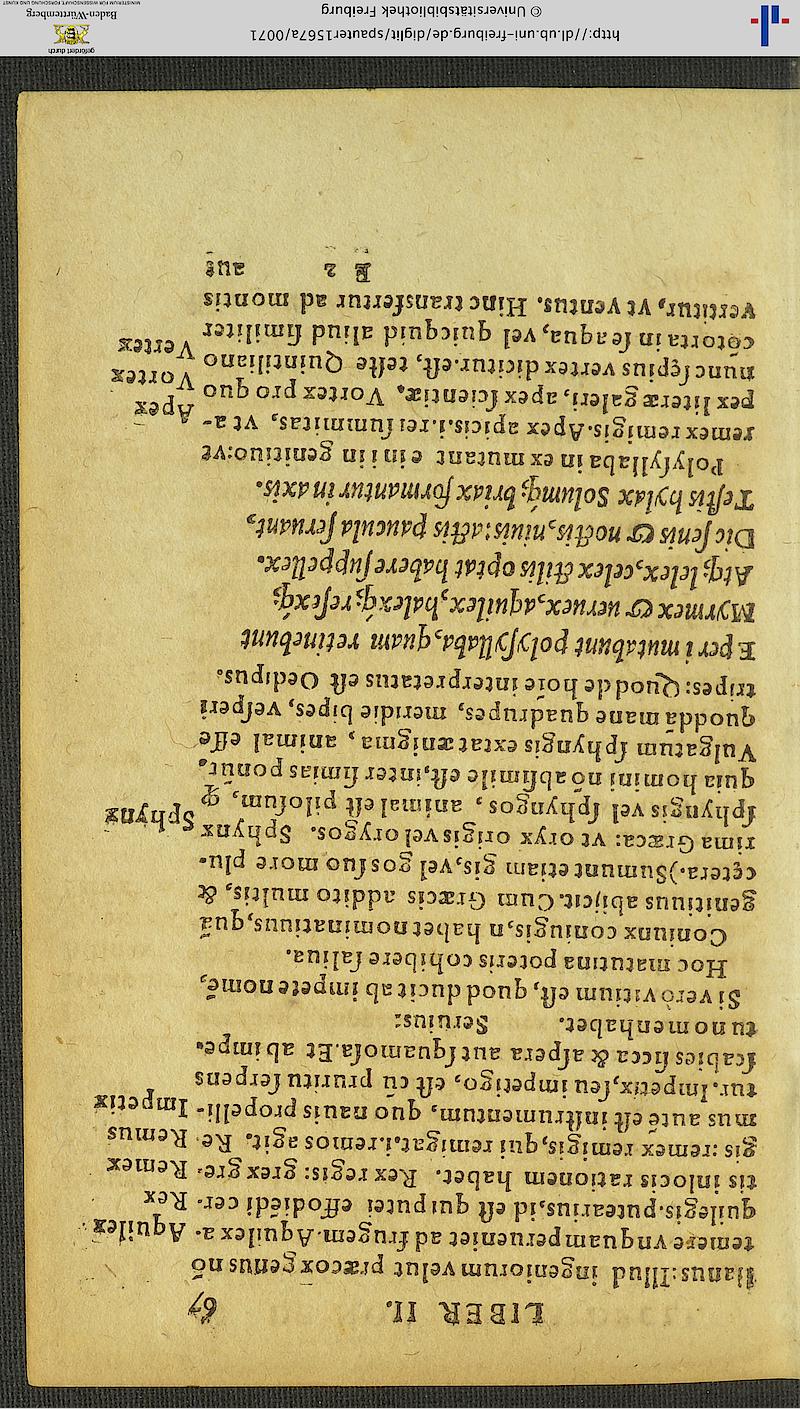 LIBER II. 67
stanus:Illud ingeniorum velut præcox genus nõ
temere vnquam peruenit ad frugem. Aquilex a- Aquilex
quilegis.putearius,id est qui putei effodiẽdi cer- Rex
tis in locis rationem habet. Rex regis: grex gre- Remex
gis: remex remigis,qui remigat.i.remos agit. Re- Remus
mus autẽ est instrumentum, quo nauis propelli- Impetix
tur.Impetix,seu impetigo, est cũ pruritu serpens
scabies sicca & aspera aut squamosa.Et ab impe-
tu nomen habet. Serenus:
Si vero vitium est, quod ducit ab impete nomẽ,
Hoc matutina poteris cohibere saliua.
Coniunx coniugis,n habet nominatiuus,quã
genitiuus abijcit.Cum Græcis addito multis, &
cętera.)Summunt etiam gis,vel gos suo more plu-
rima Græca: vt oryx origis vel orygos. Sphynx
sphyngis vel sphyngos, animal est pilosum, & Sphynx
quia homini nõ absimile est,inter simias ponit̃.
Vulgatum sphyngis extat ænigma, animal esse
quodda mane quadrupes, meridie bipes, vesperi
tripes: Quod de hoĩe interpretatus est Oedipus.
E per i mutabunt polysyllaba,quam retinebunt
Myrmex & neruex,aquilex,halexq̃ resexq̃
Atq̃ lelex,celex & filis optat habere suppellex.
Dic senis & noctis,niuis:actis paucula seruant,
Testis hylax Solumq̃ briax formantur in axis.
Polysyllaba in ex mutant e in i in genitiuo:vt
remex remigis.Apex apicis.i.rei summitas, vt a- Apex
pex literæ galeri, apex scientiæ. Vortex pro quo Vortex
nunc sępius vertex dicitur.est, teste Quintiliano Vertex
cõtorta in se aqua, vel quicquid aliud similiter
vertitur, vt ventus. Hinc transfertur ad montis
E 2 aut
http://dl.ub.uni-freiburg.de/diglit/spauter1567a/0071
© Universitätsbibliothek Freiburg
gefördert durch
Baden-Württemberg
MINISTERIUM FÜR WISSENSCHAFT, FORSCHUNG UND KUNST